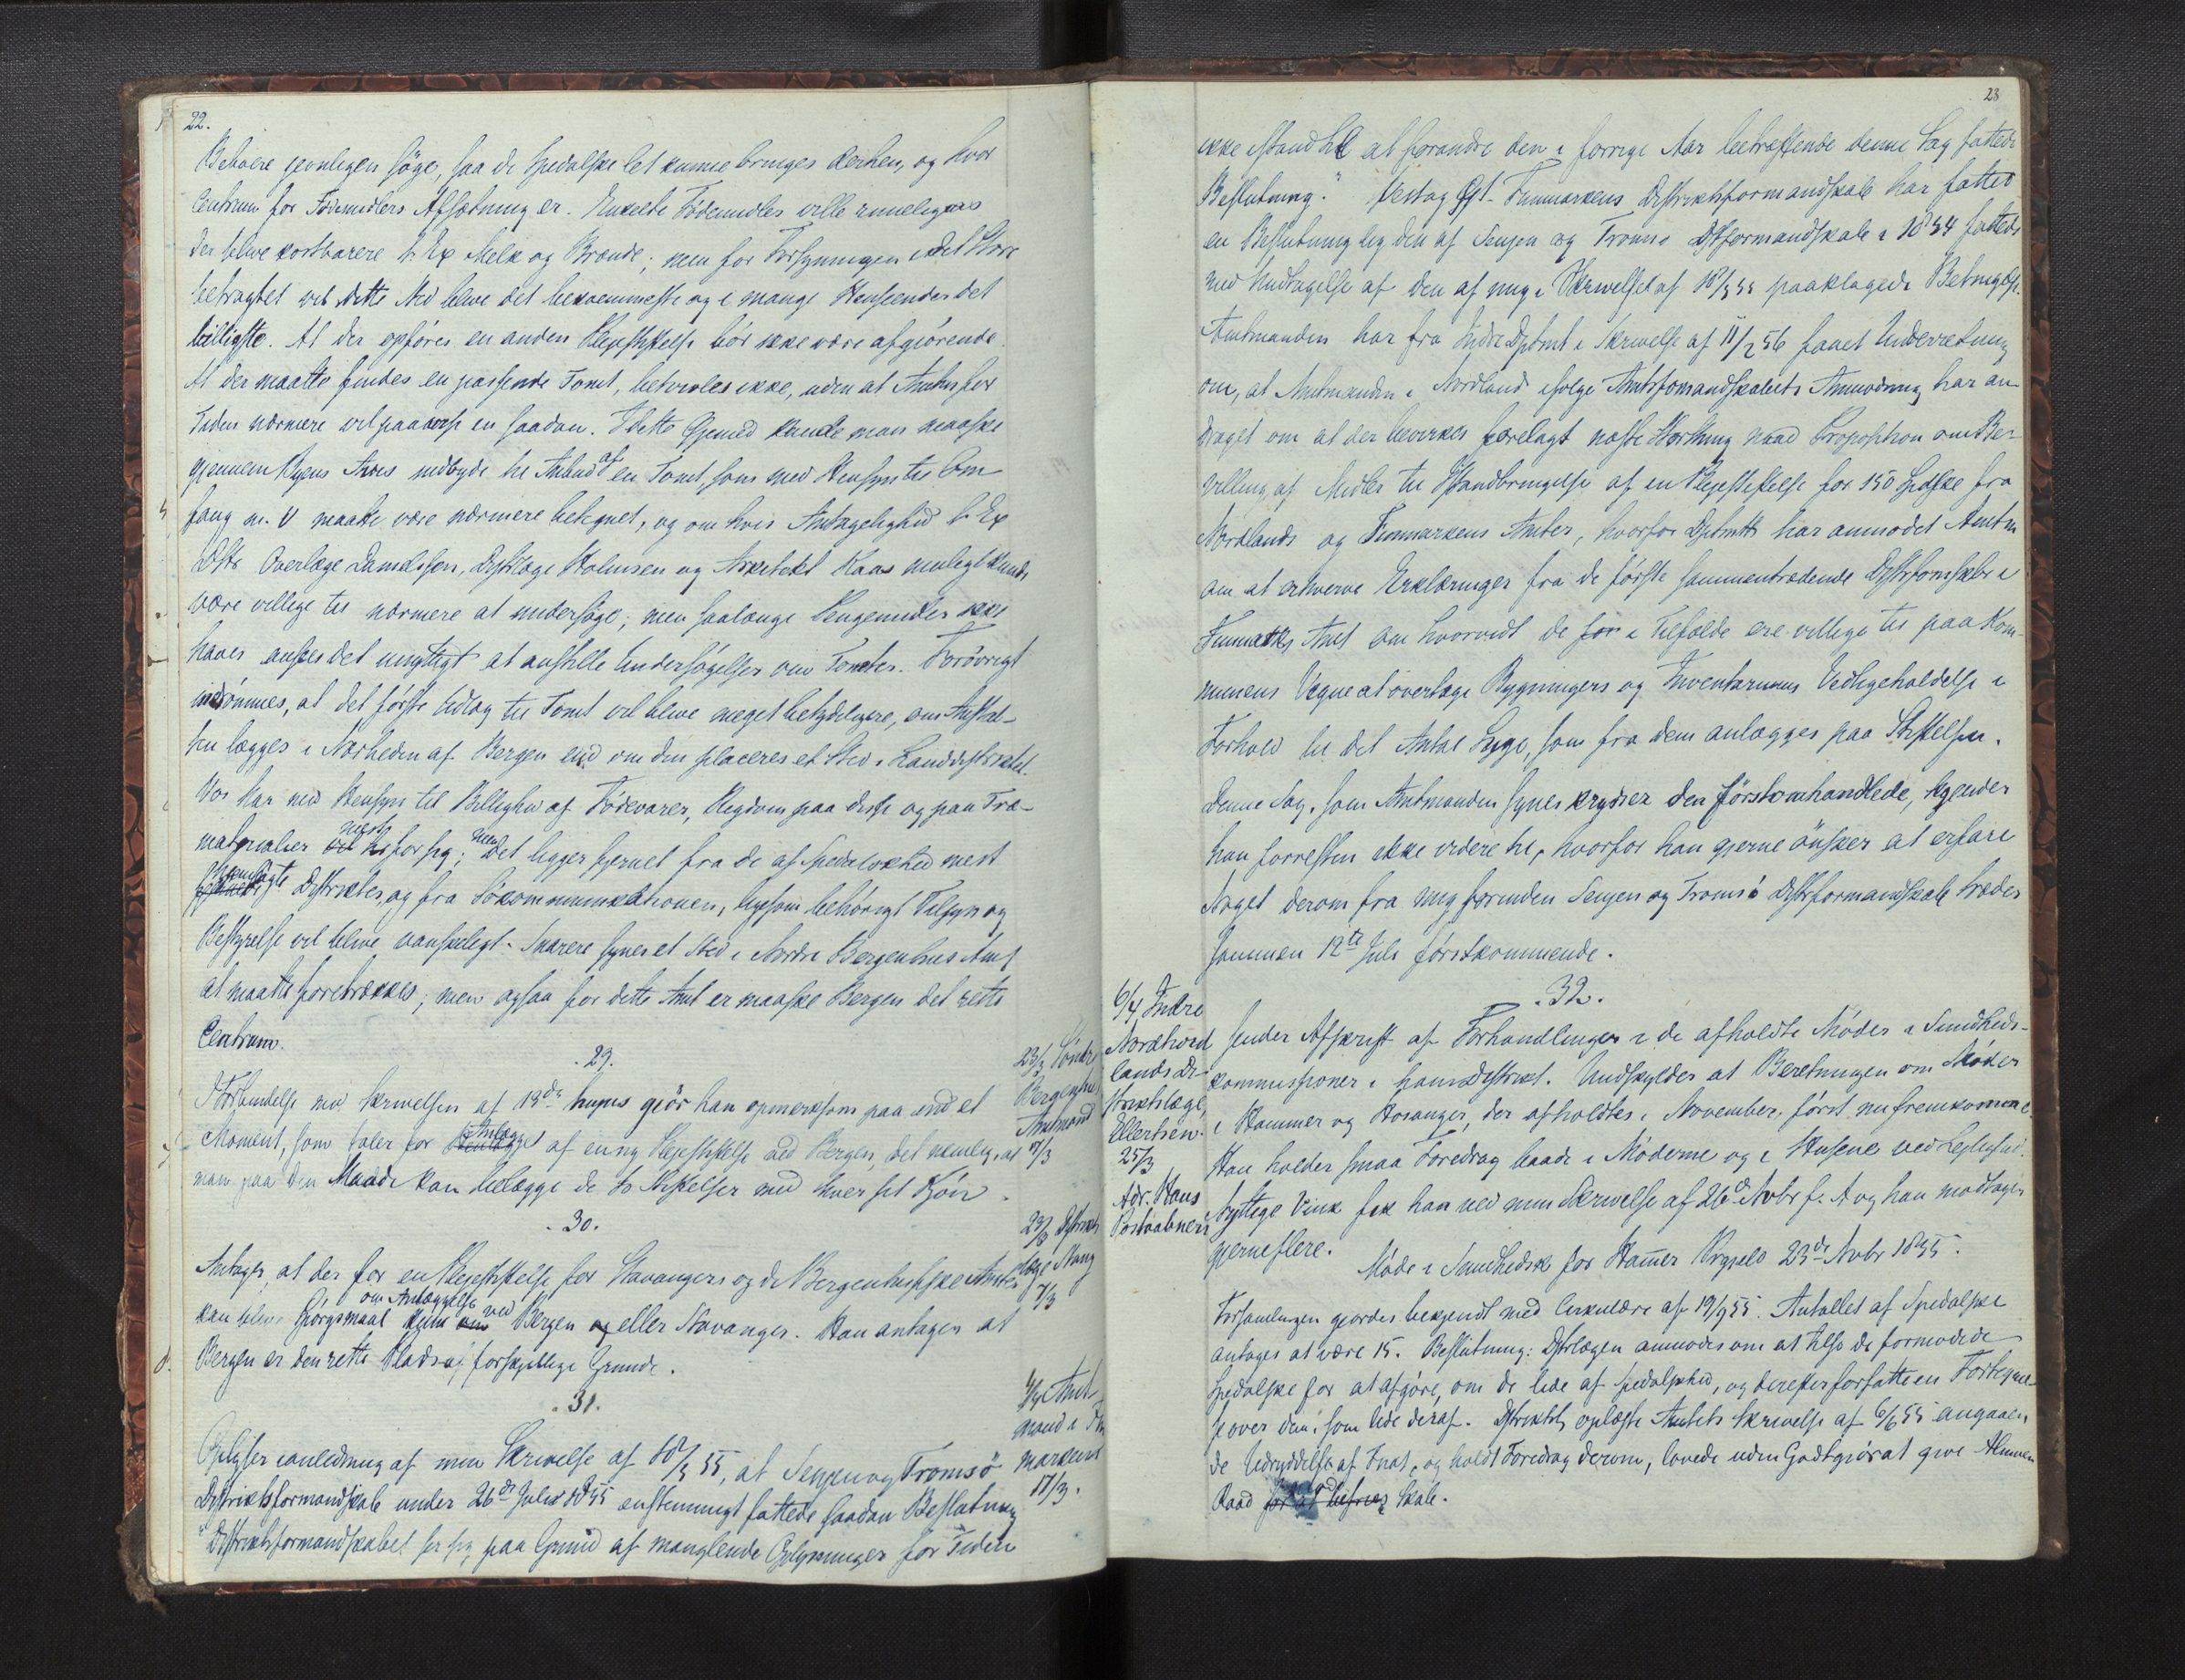 22.
Beboere jevnligen søge, saa de Spedalske let kunne bringes derhen, og hvor
Centrum for Fødemidlers Afsætning er. Enkelte Fødemidler ville rimeligvis
der blive kostbarere t. Ex Melk og Brænde; men for Forsyningen i det Store
betragtet vil dette Sted blive det bekvemmeste og i mange Henseender det
billigste. At der opføres en anden Plejestiftelse bør ikke være afgjørende.
At der maatte findes en passende Tomt, betvivles ikke, uden at Amtm for
Tiden nærmere vil paavise en saadan. I dette Øjemed kunde man maaske
gjennem Byens Avis indbyde til Anbud af en Tomt, som med Hensyn til Om
fang m. V maatte være nærmere betegnet, og om hvis Antagelighed t. Ex
Overlæge Danielssen, Distrlæge Holmsen og Arkitekt Kaas muligt kunde
være villige til nærmere at undersøge; men saalænge Pengemidler ikke
haves ansees det unyttigt at anstille Undersøgelser om Tomter. Forøvrigt
indrømmes, at det første Udlæg til Tomt vil blive meget betydeligere, om Anstal-
ten lægges i Nærheden af Bergen end om den placeres et Sted i Landdistriktet.
Vos har med Hensyn til Billighed af Fødevarer, Rigdom paa disse og paa Træ-
materialier mest for sig; men det ligger fjernet fra de af Spedalskhed mest
hjemsøgte Distrikter, og fra Søkommunikationen, ligesom behørigt Tilsyn og
Bestyrelse vil blive vanskeligt. Snarere synes et Sted i Nordre Bergenhus Amt
at maatte foretrækkes; men ogsaa for dette Amt er maaske Bergen det rette
Centrum.
. 29.
23/3 Søndre
Bergenhus
Amtmand
17/3
I Forbindelse med Skrivelsen af 13de hujus gjør han opmerksom paa end et
Moment, som taler for Anlægget af en ny Plejestiftelse ved Bergen, det nemlig, at
man paa den Maade kan belægge de to Stiftelser med hver sit Kjøn.
. 30.
23/3 Distrikts
læge Stang
7/3
Antager, at der for en Plejestiftelse for Stavangers og de Bergenhusiske Amter
kan blive Spørgsmaal kun om Anlæggelse ved Bergen eller Stavanger. Han antager at
Bergen er den rette Plads af forskjellige Grunde.
. 31.
4/4 Amt
mand i Fin
markens
17/3.
Oplyser i anledning af min Skrivelse af 18/3 55, at Senjen og Tromsø
Distriktsformandskab under 26de Juli 1855 enstemmigt fattede saadan Beslutning
"Distriktsformandskabet ser sig paa Grund af manglende Oplysninger for Tiden
23
ikke istand til at forandre den i forrige Aar betræffende denne Sag fattede
Beslutning." Vest og Øst-Finmarkens Distriktsformandskab har fattet
en Beslutning lig den af Senjen og Tromsø Dstformandskab i 1854 fattede
med Undtagelse af den af mig i Skrivelse af 18/3 55 paaklagede Betingelse.
Amtmanden har fra Indredptmt i Skrivelse af 11/2 56 faaet Underretning
om, at Amtmanden i Nordland ifølge Amtsfomandskabets Anmodning har an
draget om at der bevirkes forelagt næste Storthing naad Proposition om Be-
villing af Midler til Istandbringelse af en Plejestiftelse for 150 Spdske fra
Nordlands og Finmarkens Amter, hvorfor Dptmtt har anmodet Amtm
om at erhverve Erklæringer fra de første sammentrædende Distrfomskber i
Finmarks Amt om hvorvidt de i Tilfælde ere villige til paa Kom-
munens Vegne at overtage Bygningers og Inventariums Vedligeholdelse i
Forhold til det Antal Syge, som fra dem anlægges paa Stiftelsen.
Denne Sag, som Amtmanden synes krydser den førstomhandlede, kjender
han forresten ikke videre til, hvorfor han gjerne ønsker at erfare
Noget derom fra mig forinden Senjen og Tromsø Distrformandskab træder
sammen 12te Juli førstkommende.
. 32.
6/4 Indre
Nordhord
lands Di-
striktslæge,
Ellertsen.
25/3
Adr. Haus
Postaabneri
sender Afskrift af Forhandlinger i de afholdte Møder i Sundheds-
kommissioner i hans Distrikt. Undskylder at Beretningen om Møder
i Hammer og Hosanger, der afholdtes i November, først nu fremkomme.
Han holder smaa Foredrag baade i Møderne og i Husene ved Lejlighed.
Nyttige Vink fik han ved min Skrivelse af 26de Novbr f. A og han modtager
gjerne flere.
Møde i Sundhedsk for Hamer Prgjeld 23de Novbr 1855.
Forsamlingen gjordes bekjendt med Cirkulære af 19/9 55. Antallet af Spedalske
antages at være 15. Beslutning: Dstrlægen anmodes om at tilse de formodede
Spedalske for at afgjøre, om de lide af Spedalskhed, og derefter forfatte en Fortegnel-
se over dem, som lide deraf. Distriktsl oplæste Amtets Skrivelse af 6/6 55 angaaen
de Udryddelse af Fnat, og holdt Foredrag derom, lovede uden Godtgjør at give Almuen
Raad for at befries Skab.